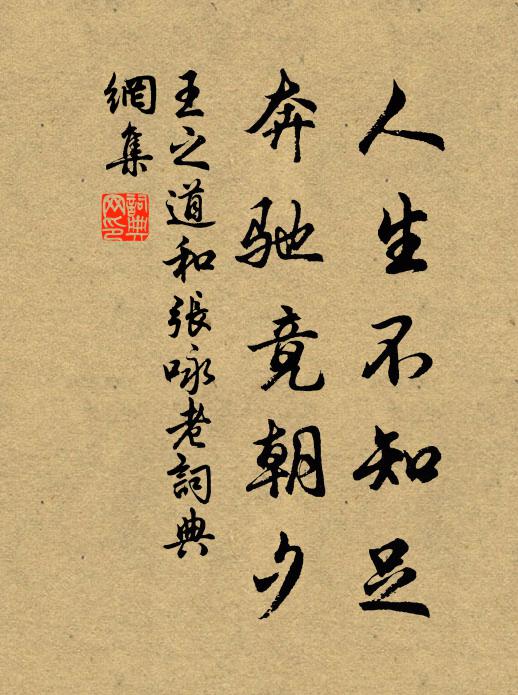 人生不知足
奔驰竟朝夕
王之道和張咏老詞典
網集
詞典
网印